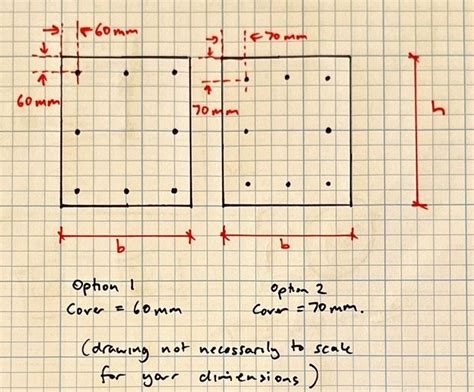 60mm
70mm
60mm
70mm
h
b
b
Option 1
Cover = 60mm
Option 2
Cover = 70mm.
(drawing not necessarily to scale
for your dimensions)